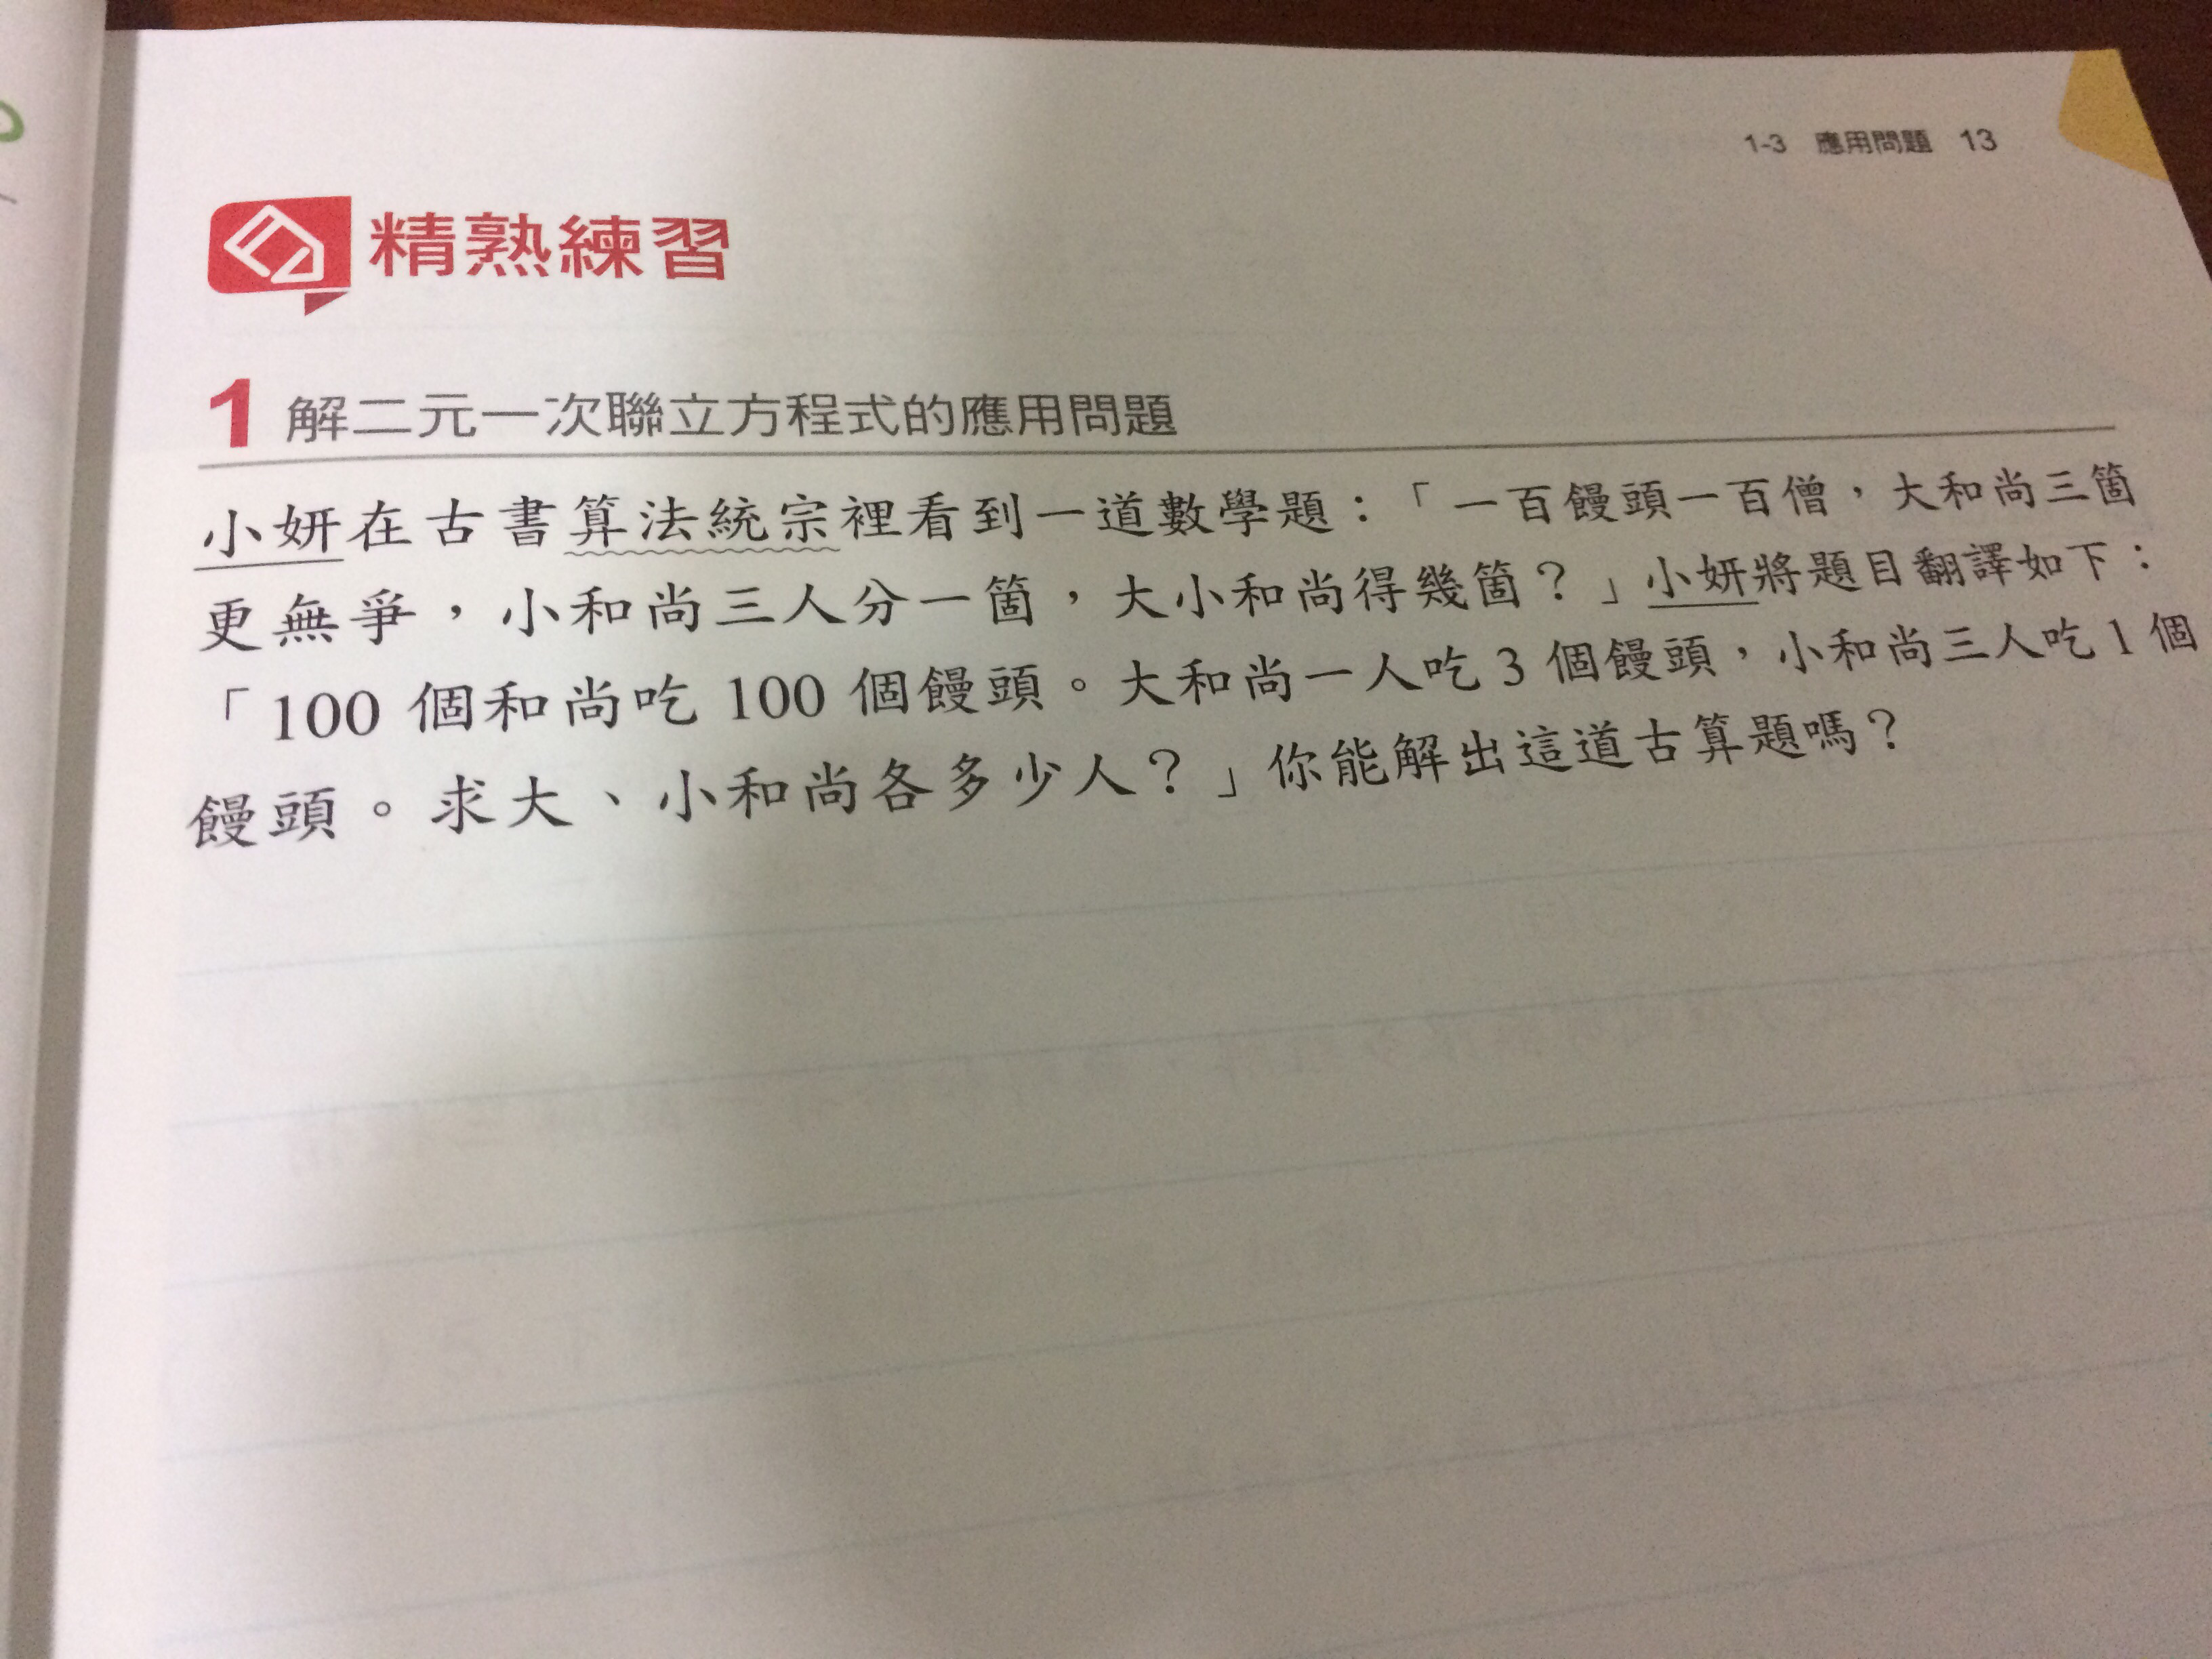 1-3 應用問題 13
精熟練習
1 解二元一次聯立方程式的應用問題
小妍在古書算法統宗裡看到一道數學題：「一百饅頭一百僧，大和尚三箇
更無爭，小和尚三人分一箇，大小和尚得幾箇？」小妍將題目翻譯如下：
「100 個和尚吃 100 個饅頭。大和尚一人吃 3 個饅頭，小和尚三人吃 1 個
饅頭。求大、小和尚各多少人？」你能解出這道古算題嗎？